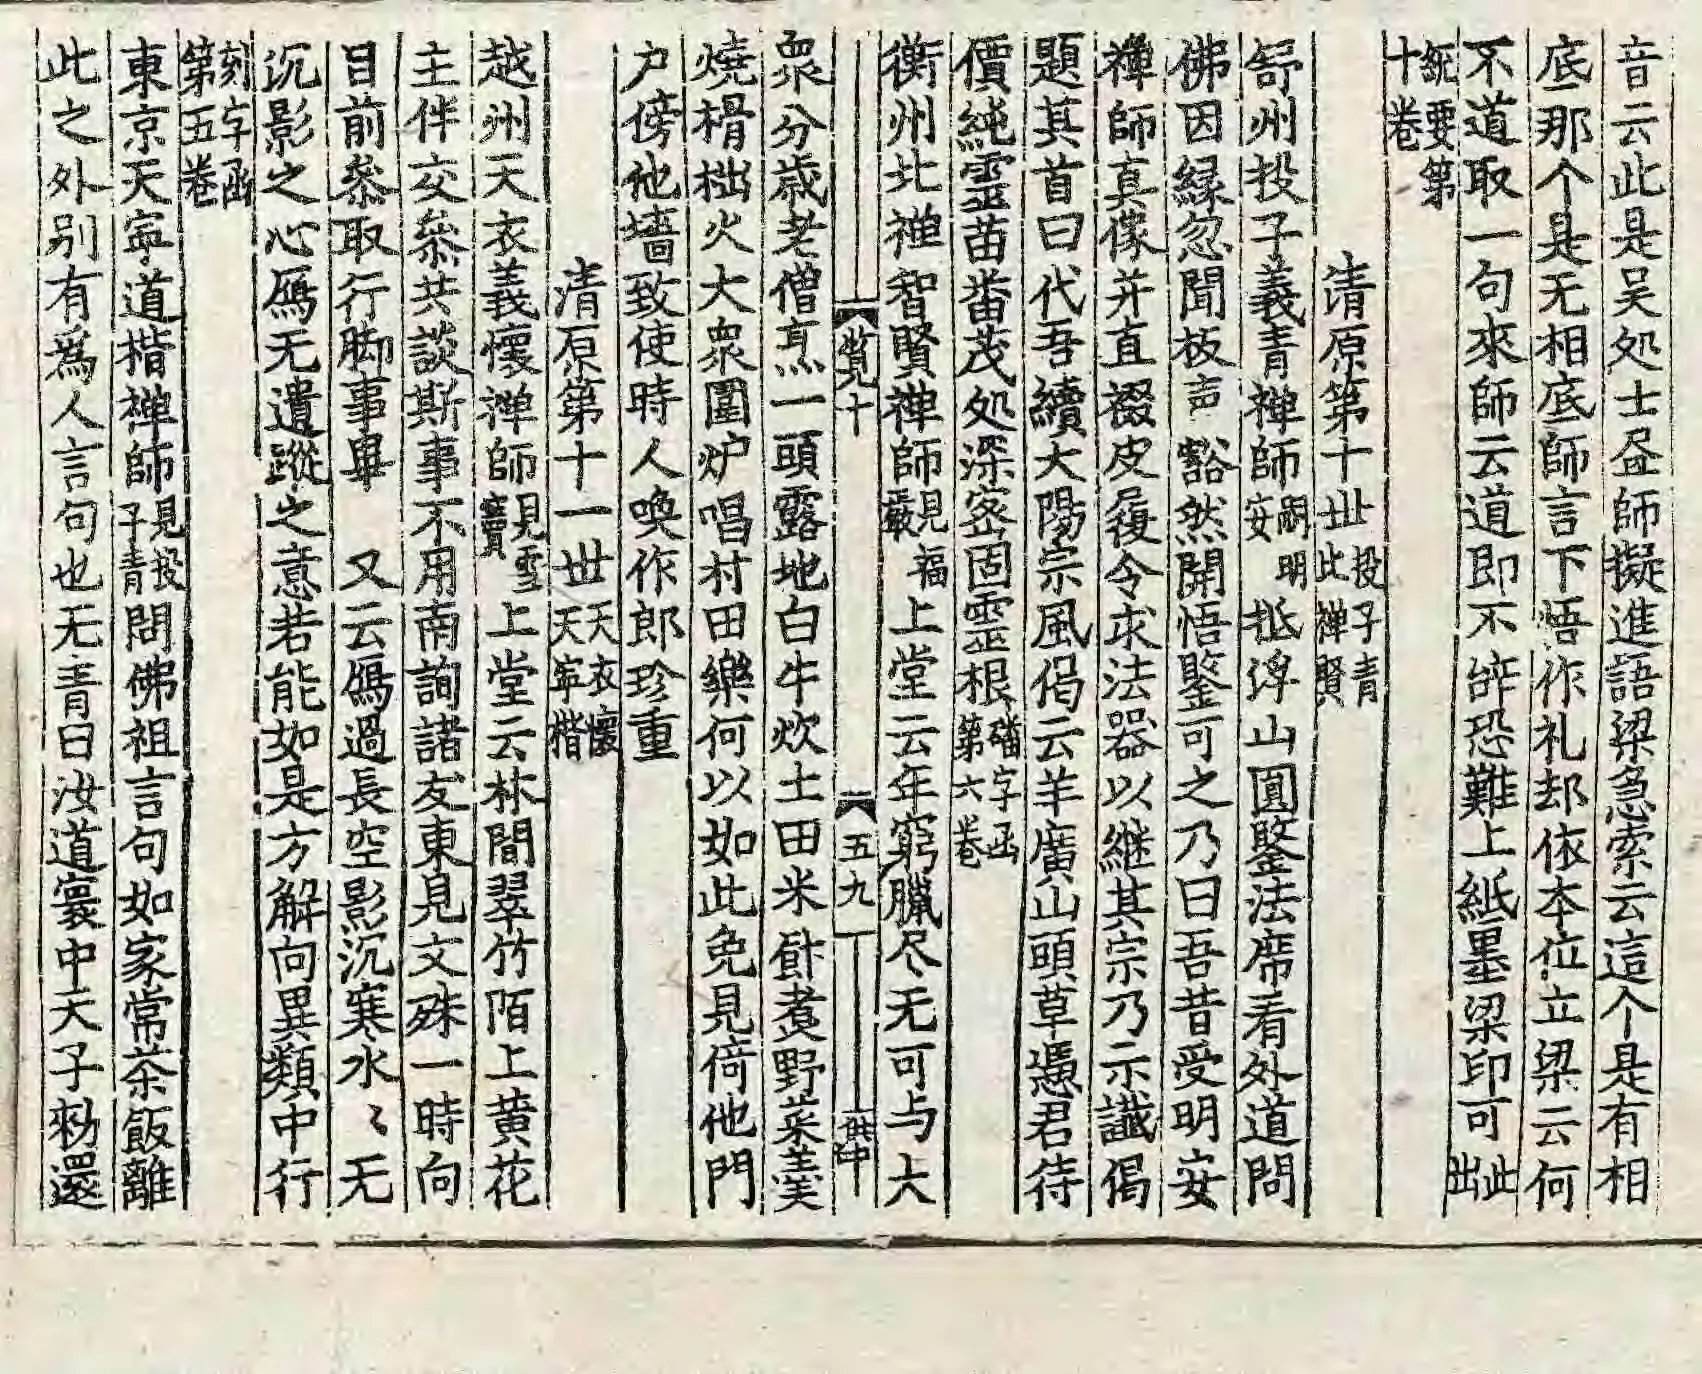 音云此是吴处士𦘕師擬進語梁急索云這个是有相
底那个是无相底師言下悟作礼却依本位立梁云何
不道取一句來師云道即不辝恐難上紙墨梁印可此出
統要第十卷
清原第十世投子青此禅賢
舒州投子義青禅師嗣明安抵浮山圓鑒法席看外道問
佛因緣忽聞板声豁然開悟鑒可之乃曰吾昔受明安
禅師真像并直裰皮履令求法器以継其宗乃示讖偈
題其首曰代吾續大陽宗風偈云羊廣山頭草憑君待
價純靈苗畨茂处深宻固靈根磻字函第六卷
衡州北禅智賢禅師見福嚴上堂云年窮臘尽无可与大
衆分歳老僧烹一頭露地白牛炊土田米飰煑野菜羹
燒榾柮火大衆圍炉唱村田樂何以如此免見倚他門
户傍他墻致使時人喚作郎珍重
清原第十一世天衣懷天寧楷
越州天衣義懷禅師見雪竇上堂云林間翠竹陌上黄花
主伴交叅共談斯事不用南詢諸友東見文殊一時向
目前叅取行脚事畢　又云鴈過長空影沉寒水〻无
沉影之心鴈无遺蹤之意若能如是方解向異類中行
刻字函第五卷
東京天寧道楷禅師見投子青問佛祖言句如家常茶飯離
此之外别有爲人言句也无青曰汝道寰中天子勑還